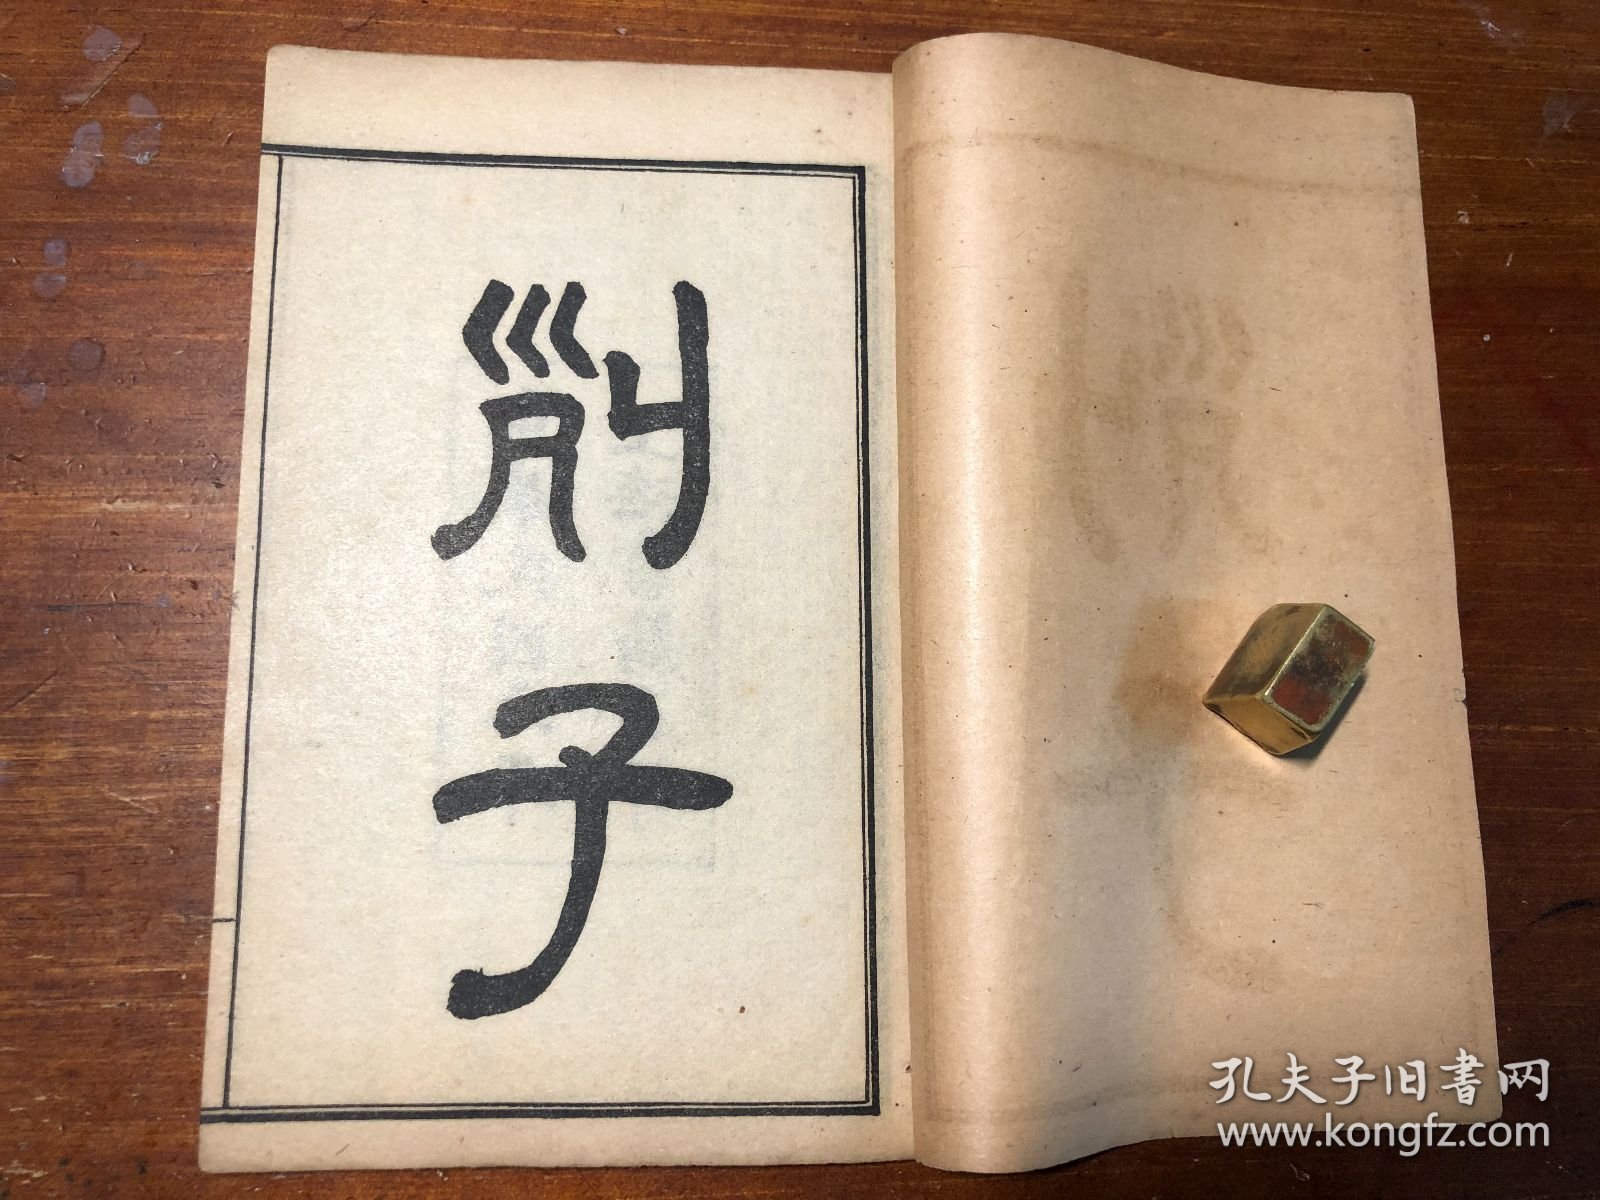 列子
孔夫子旧书网
www.kongfz.com